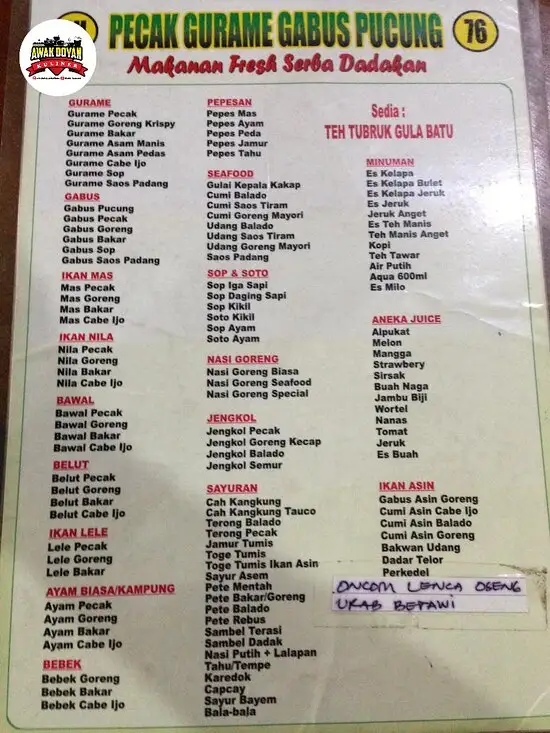 AWAK DOYAN
KULINER
PECAK GURAME GABUS PUCUNG
76
Makanan Fresh Serba Dadakan
GURAME
Gurame Pecak
Gurame Goreng Krispy
Gurame Bakar
Gurame Asam Manis
Gurame Asam Pedas
Gurame Cabe Ijo
Gurame Sop
Gurame Saos Padang
GABUS
Gabus Pucung
Gabus Pecak
Gabus Goreng
Gabus Bakar
Gabus Sop
Gabus Saos Padang
IKAN MAS
Mas Pecak
Mas Goreng
Mas Bakar
Mas Cabe Ijo
IKAN NILA
Nila Pecak
Nila Goreng
Nila Bakar
Nila Cabe Ijo
BAWAL
Bawal Pecak
Bawal Goreng
Bawal Bakar
Bawal Cabe Ijo
BELUT
Belut Pecak
Belut Goreng
Belut Bakar
Belut Cabe Ijo
IKAN LELE
Lele Pecak
Lele Goreng
Lele Bakar
AYAM BIASA/KAMPUNG
Ayam Pecak
Ayam Goreng
Ayam Bakar
Ayam Cabe Ijo
BEBEK
Bebek Goreng
Bebek Bakar
Bebek Cabe Ijo
PEPESAN
Pepes Mas
Pepes Ayam
Pepes Peda
Pepes Jamur
Pepes Tahu
SEAFOOD
Gulai Kepala Kakap
Cumi Balado
Cumi Saos Tiram
Cumi Goreng Mayori
Udang Balado
Udang Saos Tiram
Udang Goreng Mayori
Saos Padang
SOP & SOTO
Sop Iga Sapi
Sop Daging Sapi
Sop Kikil
Soto Kikil
Sop Ayam
Soto Ayam
NASI GORENG
Nasi Goreng Biasa
Nasi Goreng Seafood
Nasi Goreng Special
JENGKOL
Jengkol Pecak
Jengkol Goreng Kecap
Jengkol Balado
Jengkol Semur
SAYURAN
Cah Kangkung
Cah Kangkung Tauco
Terong Balado
Terong Pecak
Jamur Tumis
Toge Tumis
Toge Tumis Ikan Asin
Sayur Asem
Pete Mentah
Pete Bakar/Goreng
Pete Balado
Pete Rebus
Sambel Terasi
Sambel Dadak
Nasi Putih + Lalapan
Tahu/Tempe
Karedok
Capcay
Sayur Bayem
Bala-bala
Sedia :
TEH TUBRUK GULA BATU
MINUMAN
Es Kelapa
Es Kelapa Bulet
Es Kelapa Jeruk
Es Jeruk
Jeruk Anget
Es Teh Manis
Teh Manis Anget
Kopi
Teh Tawar
Air Putih
Aqua 600ml
Es Milo
ANEKA JUICE
Alpukat
Melon
Mangga
Strawbery
Sirsak
Buah Naga
Jambu Biji
Wortel
Nanas
Tomat
Jeruk
Es Buah
IKAN ASIN
Gabus Asin Goreng
Cumi Asin Cabe Ijo
Cumi Asin Balado
Cumi Asin Goreng
Bakwan Udang
Dadar Telor
Perkedel
ONCOM LENCA OSENG
URAB BETAWI